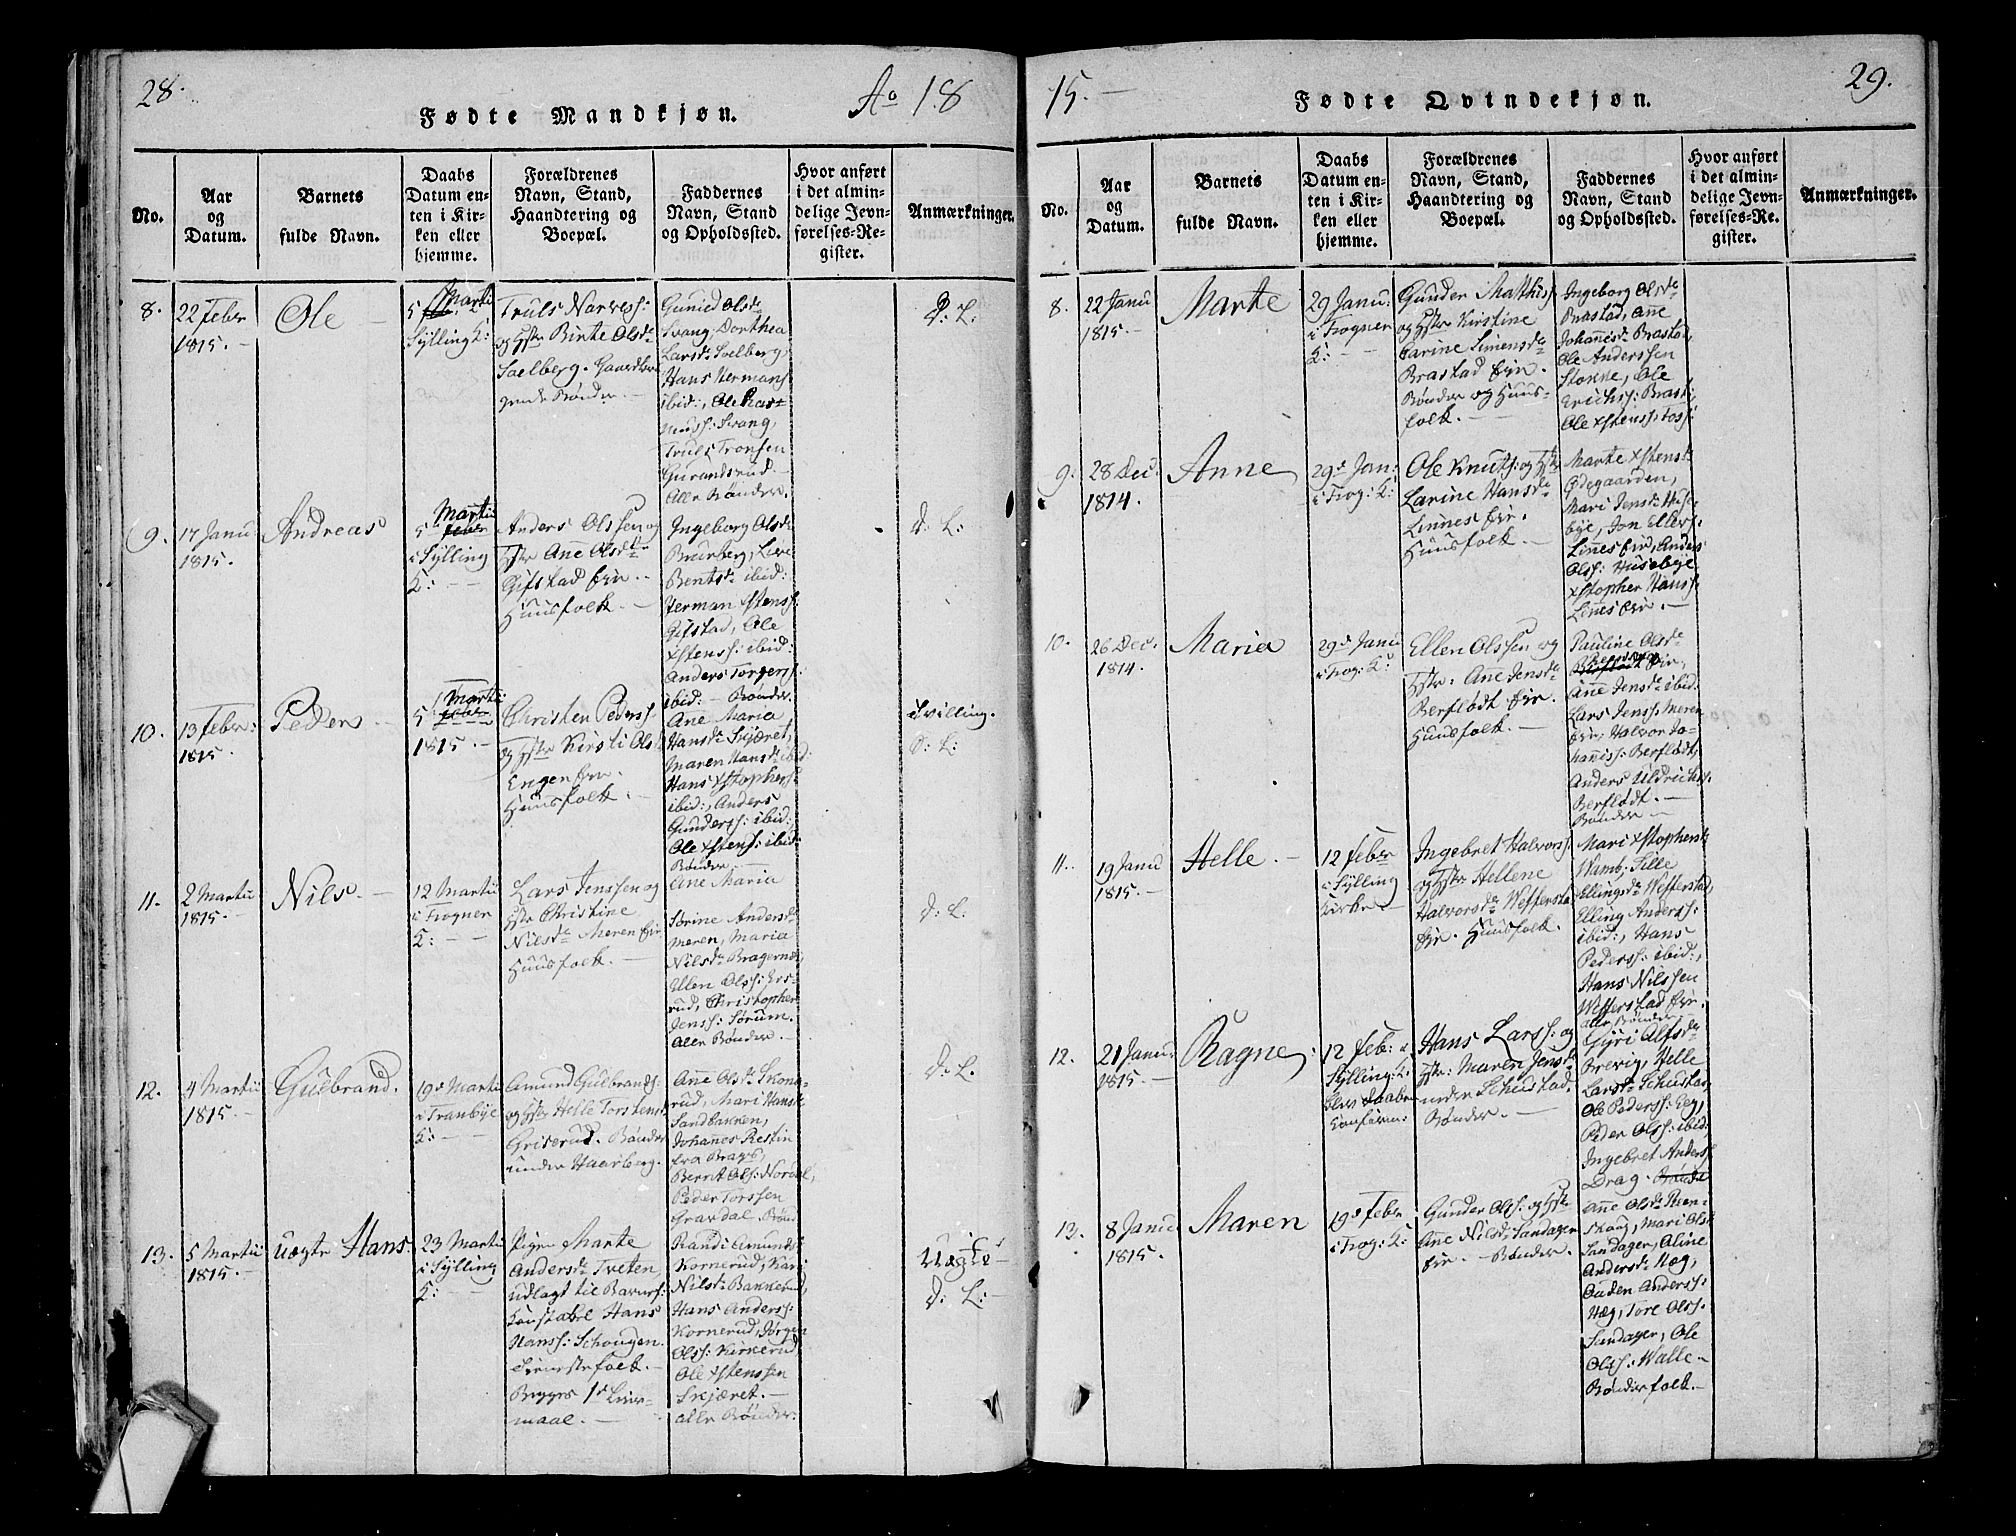 28.
Ao 18
Fødte Mandkjøn.
No.
Aar
og
Datum.
Barnets
fulde Navn.
Daabs
Datum en-
ten i Kir-
ken eller
hjemme.
Forældrenes
Navn, Stand,
Haandtering og
Boepæl.
Faddernes
Navn, Stand
og Opholdssted.
Hvor anført
i det almin-
delige Jevn-
førelses-Re-
gister.
Anmærkninger.
8.
22 Febr
1815.
Ole
5 Martii
i Sylling K:
Truls Narvess:
og Hstr Birte Olsd:
Soelberg. Gaardbru
gende Bønder.
Gunild Olsd
Svang, Dorthea
Larsd: Soelberg
Hans Hermans:
ibid:, Ole Ras=
muss: Svang,
Truls Tronsen
Gurandsrud.
Alle Bønder.
D: L:
9.
17 Janu
1815.
Andreas
5 Martii
Febr
i Sylling
K:
Anders Olssen og
Hstr Ane Olsd
Gifstad Eie.
Huusfolk.
Ingeborg Olsd:
Buurberg, Live
Bentsd: ibid:
Herman Xstenss:
Gifstad, Ole
Xstenss: ibid:
Anders Torgerss:
ibid: Bønder.
D: L:
10.
13 Febr:
1815.
Peder
5 Martii
Febr
1815.
Christen Pederss:
og Hstr Kirsti Olsd:
Engen Eie.
Huusfolk.
Ane Maria
Hansd: Skjæret,
Maren Hansd: ibid:
Hans Xstophers:
ibid:, Anders
Gunderss: ibid:
Ole Xstens: ibid:
Bønder
Tvilling.
D: L:
11.
2 Martii
1815.
Nils
12 Martii
i Frogner
K:
Lars Jenssen og
Hstr Christine
Nilsd: Meren Eie
Huusfolk.
Ane Maria
Sørine Andersd:
Meren, Maria
Nilsd: Bragernæs,
Ellen Olss: Ers-
rud, Christopher
Jenss: Sørum.
Alle Bønder.
D: L:
12.
4 Martii
1815.
Gulbrand.
19d Martii
i Tranbye
K:
Amund Gulbrands:
og Hstr Helle Torstensd:
Griserud. Bønder
under Haarberg.
Anne Olsd: Skong-
rud, Mari Hansd:
Sandbakken,
Johanes Restin
fra Brags,
Bernt Ols: Nordal,
Peder Torssen
Gravdal. Bønd
D: L.
13.
5 Martii
1815.
uægte Hans
23 Martii
i Sylling
K:
Pigen Marte
Andersd: Tveten,
udlagt til Barnef:
Constabel Hans
Hanss: Schougen.
Tienestefolk.
Begges 1ste Leier-
maal.
Randi Amundsd:
Kornerud, Kari
Nilsd: Bakkerud,
Hans Anderss:
Kornerud, Jørgen
Olss: Kirkerud
Ole Xstenssen
Skjæret.
alle Bønder:
Uægte
D: L:
15.
29.
Fødte Qvindekjøn.
No.
Aar
og
Datum.
Barnets
fulde Navn.
Daabs
Datum en-
ten i Kir-
ken eller
hjemme.
Forældrenes
Navn, Stand,
Haandtering og
Boepæl.
Faddernes
Navn, Stand
og Opholdssted.
Hvor anført
i det almin-
delige Jevn-
førelses-Re-
gister.
Anmærkninger.
8.
22 Janu
1815.
Marte
29 Janu:
i Frogner
K:
Gunder Matthiss:
og Hstr Kirstine
Carine Simensd:
Brastad Eie.
Bønder og Huus-
folk.
Ingeborg Olsd:
Brastad, Ane
Johannisd: Brastad,
Ole Anderssen
Stokke, Ole
Erichss: Brast:
Ole Xstenss: Foss:
9.
28 Dec:
1814.
Anne
29d Jan:
i Frog: K:
Ole Knuts: og Hstr
Larine Hansd:
Linnes Eie.
Huusfolk.
Marte Xstensd:
Ødegaarden,
Mari Jensd: Huse-
bye, Jon Ellefs:
Linnes Eie, Anders
Olss: Husebye
Xstopher Hanss:
Linnes Eie.
10.
26 Dec.
1814.
Maria
29d Janu
i Frog: K:
Ellen Olssen og
Hstr: Ane Jensd:
Berflødt Eie.
Huusfolk.
Pauline Olsd:
Ane Jensd: ibid:
Lars Jenss: Meren
Eie, Halvor Jo-
haniss: Berflødt,
Anders Uldrichs:
Berflødt.
Bønder
11.
19 Janu
1815.
Helle.
12 Febr
i Sylling
Kirke
Ingebret Halvors:
og Hstr Hellene
Halvorsd: Wefferstad
Eie. Huusfolk.
Mari Xstophersd:
Wamb, Sille
Ellingsd: Wefferstad,
Elling Anderss:
ibid:, Hans
Pederss: ibid:,
Hans Nilssen
Wefferstad Eie.
alle Bønder
12.
21 Janu:
1815.
Ragne
12 Feb: i
Sylling: K:
blev Daaben
Confirm:
Hans Larss: og
Hstr: Maren Jensd:
nedre Schustad.
Bønder.
Gyri Olfsd:
Brevig, Helle
Larsd: Schustad,
Ole Pederss: Eeg,
Peder Olss: ibid:
Ingebret Anders:
Drag. Bønder
13.
8 Janu
1815.
Maren
19d Febr
i Frog: K:
Gunder Olss: og Hstr
Ane Nilsd: Sandager
Eie. Bønder.
Ane Olsd: Reen-
skoug, Mari Olsd:
Sandager, Aline
Andersd: Hæg,
Auden Anderss:
Hæg, Tore Olss:
Sandager, Ole
Olss: Walle
Bønderfolk.